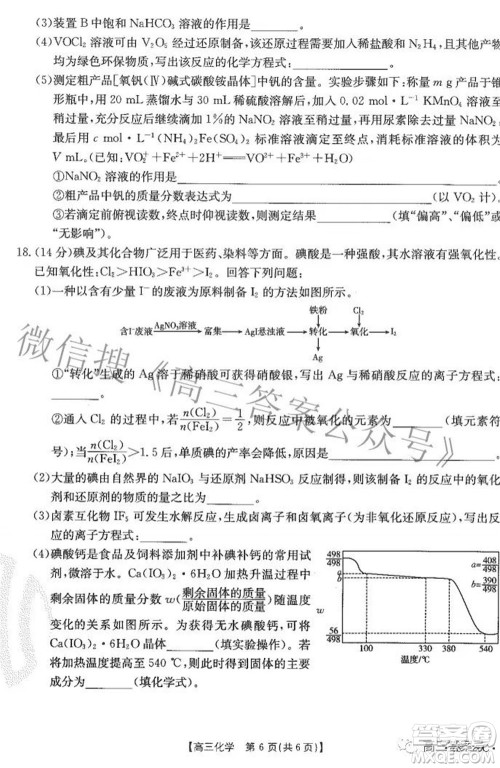 (3)装置 B 中饱和 NaHCO₃ 溶液的作用是________。
(4)VOCl₂ 溶液可由 V₂O₅ 经过还原制备,该还原过程需要加入稀盐酸和 N₂H₄,且其产物
均为绿色环保物质,写出该反应的化学方程式:________。
(5)测定粗产品[氧钒(Ⅳ)碱式碳酸铵晶体]中钒的含量。实验步骤如下:称量 m g 产品于锥
形瓶中,用 20 mL 蒸馏水与 30 mL 稀硫酸溶解后,加入 0.02 mol·L⁻¹ KMnO₄ 溶液至
稍过量,充分反应后继续滴加 1% 的 NaNO₂ 溶液至稍过量,再用尿素除去过量 NaNO₂,
最后用 c mol·L⁻¹(NH₄)₂Fe(SO₄)₂ 标准溶液滴定至终点,消耗标准溶液的体积为
V mL。(已知:VO₂⁺+Fe²⁺+2H⁺══VO²⁺+Fe³⁺+H₂O)
①NaNO₂ 溶液的作用是________。
②粗产品中钒的质量分数表达式为________(以 VO₂ 计)。
③若滴定前俯视读数,终点时仰视读数,则测定结果________(填“偏高”、“偏低”或
“无影响”)。
18.(14 分)碘及其化合物广泛用于医药、染料等方面。碘酸是一种强酸,其水溶液有强氧化性。
已知氧化性:Cl₂>HIO₃>Fe³⁺>I₂。回答下列问题:
(1)一种以含有少量 I⁻ 的废液为原料制备 I₂ 的方法如图所示。
铁粉 Cl₂
含I⁻废液 AgNO₃溶液 富集 AgI悬浊液 转化 氧化 I₂
Ag
①“转化”生成的 Ag 溶于稀硝酸可获得硝酸银,写出 Ag 与稀硝酸反应的离子方程式:
________。
②通入 Cl₂ 的过程中,若n(Cl₂)/n(FeI₂)=1/2,则反应中被氧化的元素为________(填元素符
号);当n(Cl₂)/n(FeI₂)>1.5 后,单质碘的产率会降低,原因是________。
(2)大量的碘由自然界的 NaIO₃ 与还原剂 NaHSO₃ 反应制得,则该制备 I₂ 的反应中氧化
剂和还原剂的物质的量之比为________。
(3)卤素互化物 IF₅ 可发生水解反应,生成卤离子和卤氧离子(为非氧化还原反应),写出反
应的离子方程式:________。
(4)碘酸钙是食品及饲料添加剂中补碘补钙的常用试
剂,微溶于水。Ca(IO₃)₂·6H₂O 加热升温过程中
剩余固体的质量分数 w(剩余固体的质量/原始固体的质量)随温度
变化的关系如图所示。为获得无水碘酸钙,可将
Ca(IO₃)₂·6H₂O晶体________(填实验操作)。若
将加热温度提高至 540 ℃,则得到固体的主要
成分为________(填化学式)。
498/498
a
b
56/498
a=408/498
b=390/498
100 330 380 540
温度/℃
【高三化学 第 6 页(共 6 页)】
微信搜《高三答案公众号》